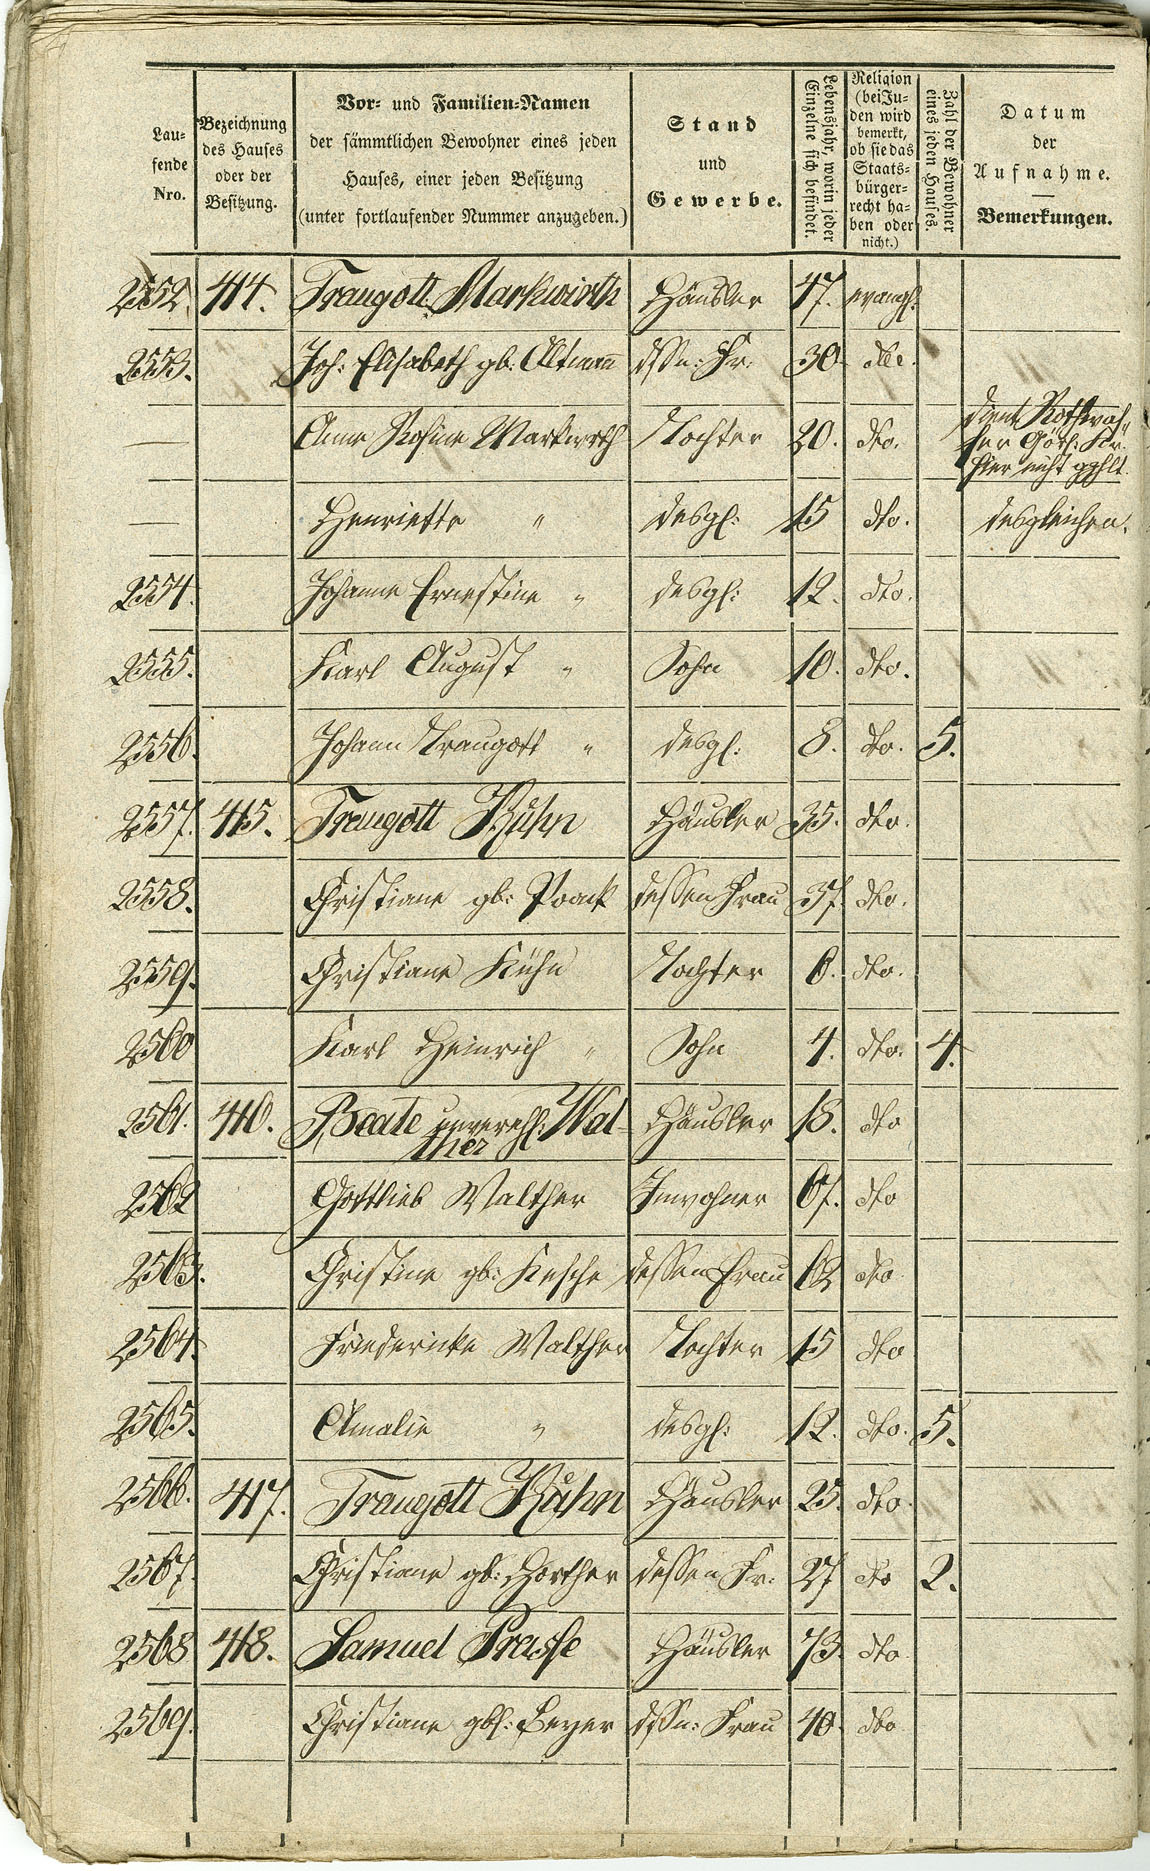 Lau-
fende
Nro.
Bezeichnung
des Hauses
oder der
Besitzung.
Vor- und Familien-Namen
der sämmtlichen Bewohner eines jeden
Hauses, einer jeden Besitzung
(unter fortlaufender Nummer anzugeben.)
Stand
und
Gewerbe.
Lebensjahr, worin jeder
Einzelne sich befindet.
Religion
(bei Ju-
den wird
bemerkt,
ob sie das
Staats-
bürger-
recht ha-
ben oder
nicht.)
Zahl der Bewohner
eines jeden Hauses.
Datum
der
Aufnahme.
Bemerkungen.
2552. 414. Traugott Markwirth Häusler 47. evangl.
2553. Joh: Elisabeth gb: Altmann dssn: Fr. 30. dto.
— Anna Rosina Markwirth Tochter 20. dto. dient Rothwas-
ser Görl: Kr.
hier nicht gzhlt.
— Henriette " desgl: 15 dto. desgleichen.
2554. Johanne Ernestine " desgl: 12. dto.
2555. Karl August " Sohn 10. dto.
2556. Johann Traugott " desgl: 8. dto. 5.
2557. 415. Traugott Kühn Häusler 35. dto.
2558. Christiane gb: dessen Frau 37. dto.
2559. Christiane Kühn Tochter 6. dto.
2560 Karl Heinrich " Sohn 4. dto. 4.
2561. 416. Beate unverehl: Wal-
ther Häusler 18. dto
2562 Gottlieb Walther Inwohner 67. dto
2563. Christine gb: dessen Frau 62 dto
2564. Friedericke Walther Tochter 15 dto
2565. Amalie " desgl: 12. dto. 5.
2566. 417. Traugott Kühn Häusler 25. dto.
2567. Christiane gb: dessen Fr: 27 dto 2.
2568 418. Samuel Prasse Häusler 73. dto.
2569. Christiane gb: Beyer dssn: Frau 40. dto